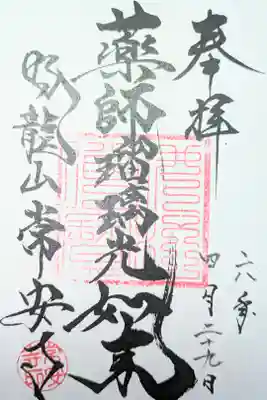 奉拝
六年
四月二十九日
薬師瑠璃光如来
龍山常安寺